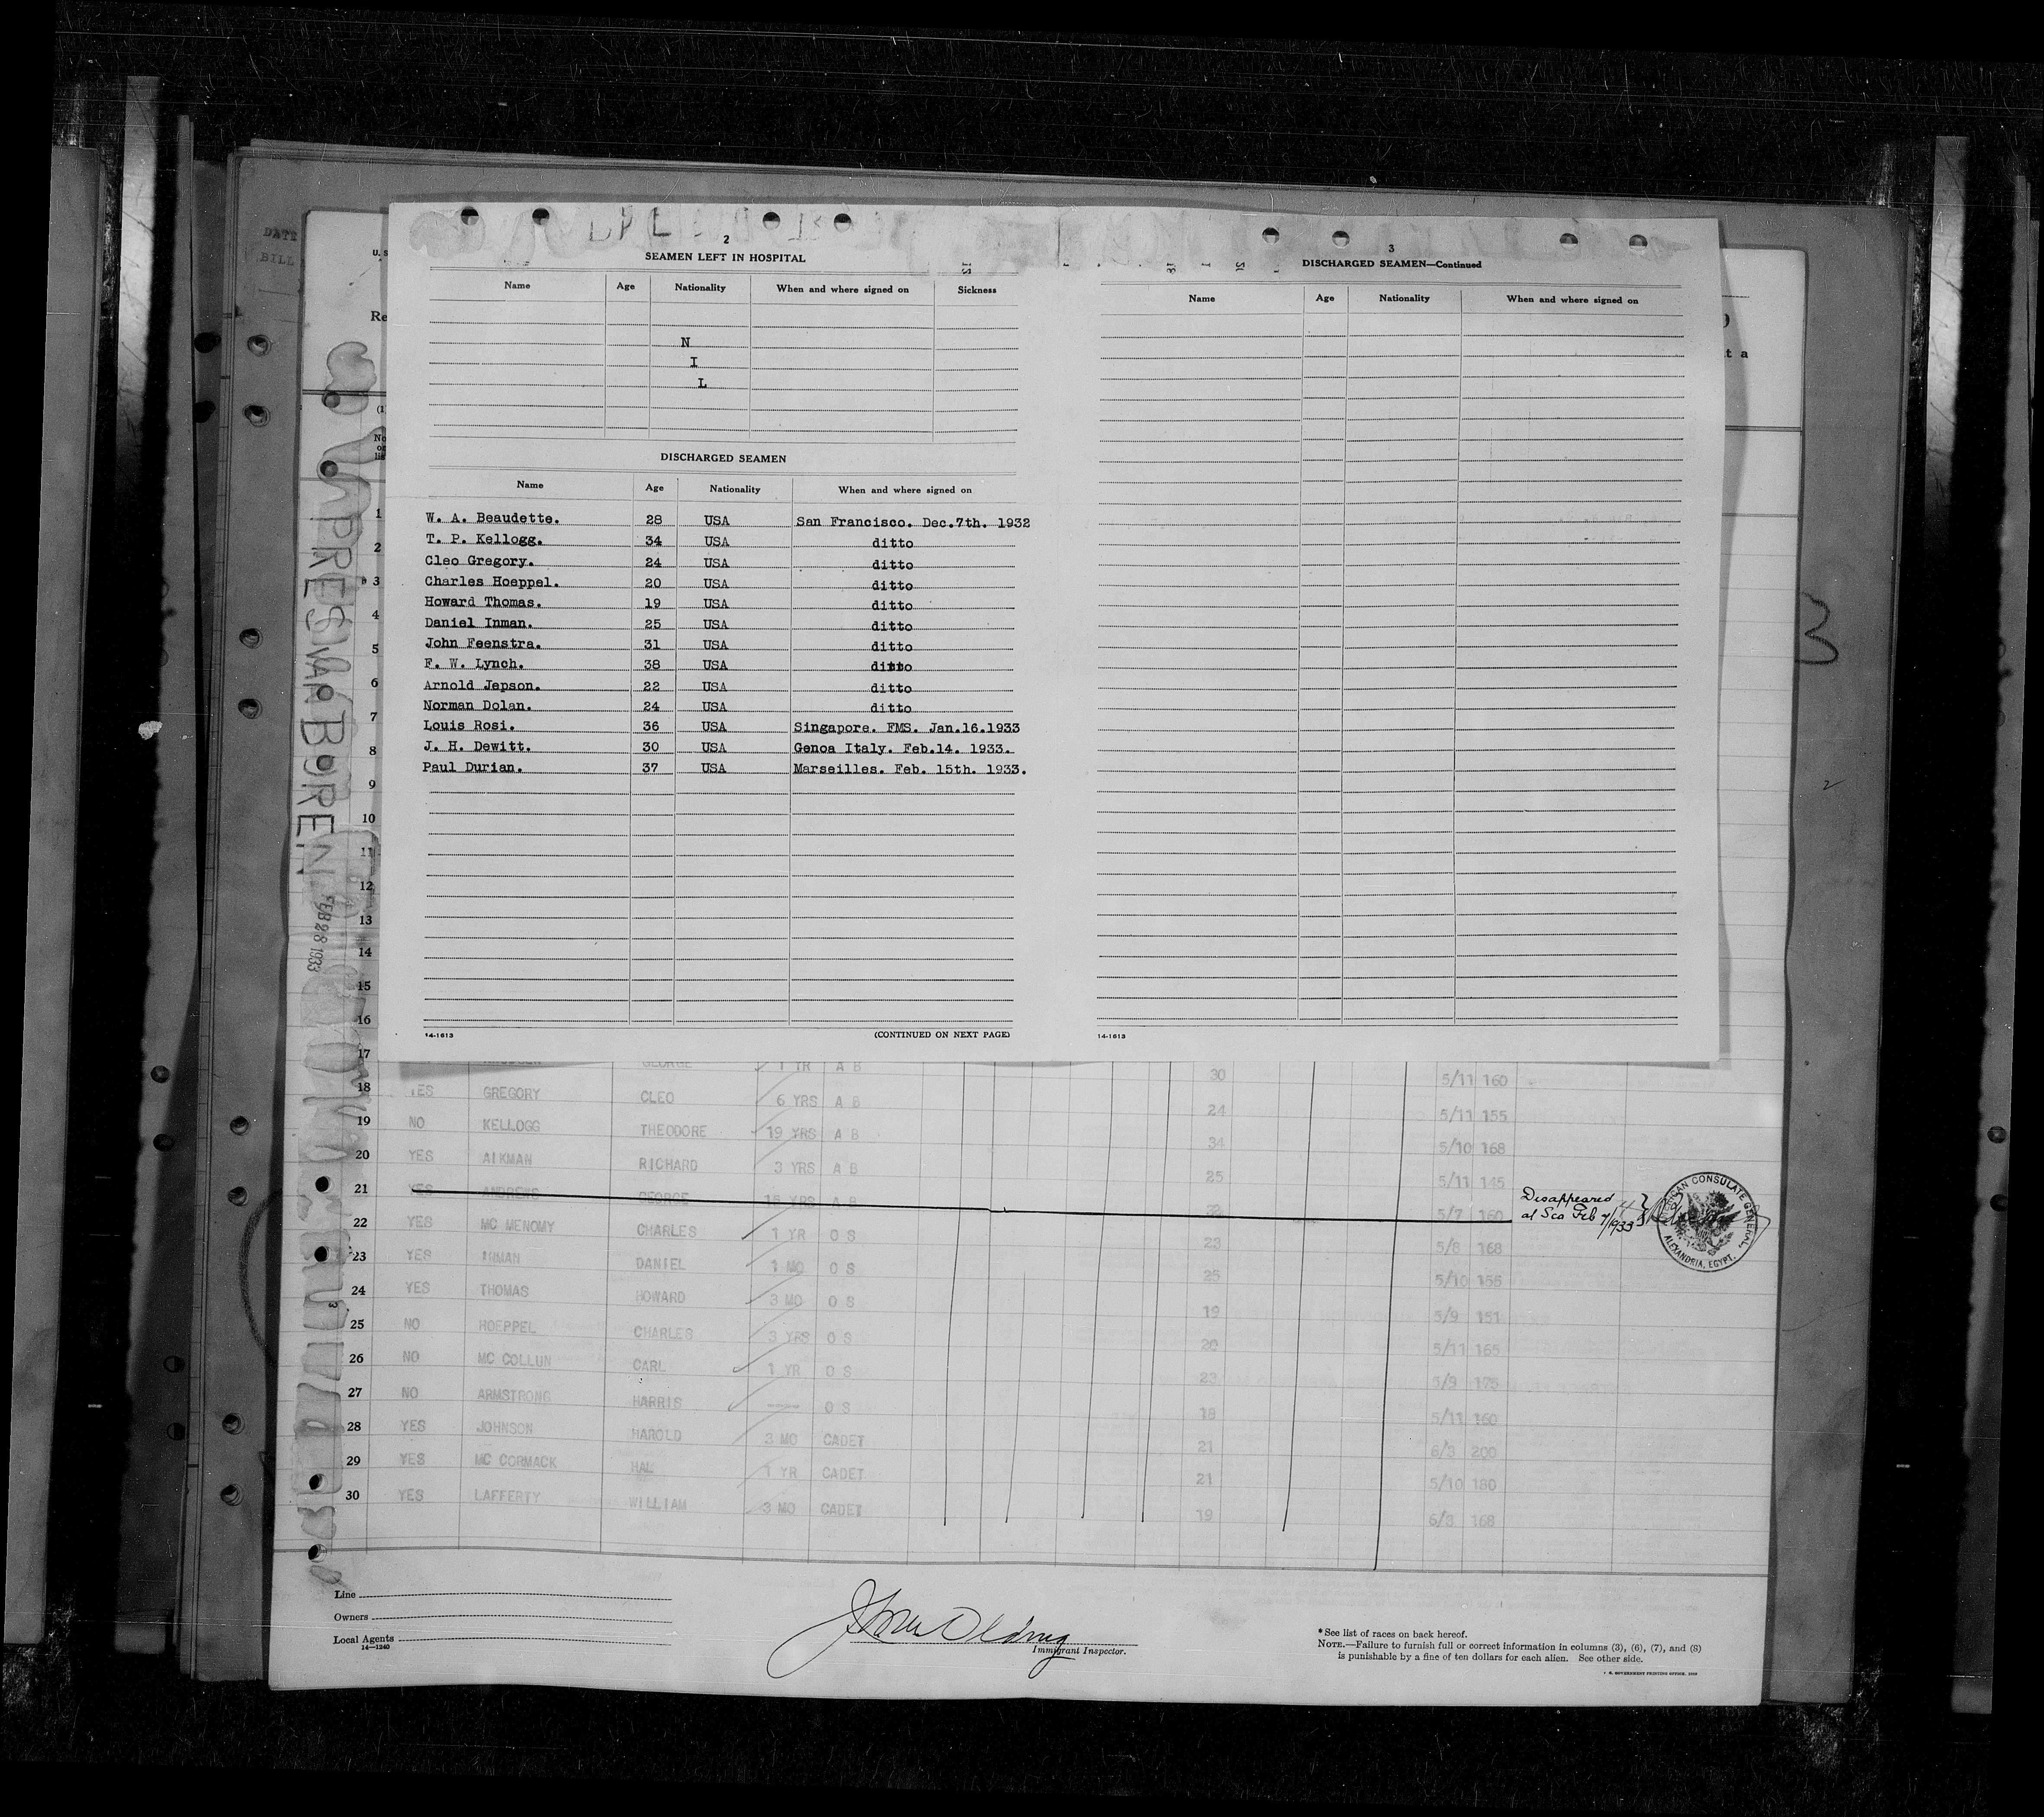 DATE
BILL
U. S
Re
2
SEAMEN LEFT IN HOSPITAL
Name Age Nationality When and where signed on Sickness
N
I
L
DISCHARGED SEAMEN
Name Age Nationality When and where signed on
W. A. Beaudette. 28 USA San Francisco. Dec.7th. 1932
T. P. Kellogg. 34 USA ditto
Cleo Gregory. 24 USA ditto
Charles Hoeppel. 20 USA ditto
Howard Thomas. 19 USA ditto
Daniel Inman. 25 USA ditto
John Feenstra. 31 USA ditto
F. W. Lynch. 38 USA ditto
Arnold Jepson. 22 USA ditto
Norman Dolan. 24 USA ditto
Louis Rosi. 36 USA Singapore. FMS. Jan.16.1933
J. H. Dewitt. 30 USA Genoa Italy. Feb.14. 1933.
Paul Durian. 37 USA Marseilles. Feb. 15th. 1933.
14-1613 (CONTINUED ON NEXT PAGE)
3
DISCHARGED SEAMEN—Continued
Name Age Nationality When and where signed on
14-1613
t a
3
PRES VAN BUREN FEB 28 1933
1
2
3
4
5
6
7
8
9
10
11
12
13
14
15
16
17 GEORGE 1 YR A B 30 5/11 160
18 YES GREGORY CLEO 6 YRS A B 24 5/11 155
19 NO KELLOGG THEODORE 19 YRS A B 34 5/10 168
20 YES AIKMAN RICHARD 3 YRS A B 25 5/11 145
21 YES ANDREWS GEORGE 15 YRS A B 5/7 160 Disappeared
at Sea Feb 1933
AMERICAN CONSULATE GENERAL, ALEXANDRIA, EGYPT.
22 YES MC MENOMY CHARLES 1 YR O S 23 5/8 168
23 YES INMAN DANIEL 1 MO O S 25 5/10 155
24 YES THOMAS HOWARD 3 MO O S 19 5/9 151
25 NO HOEPPEL CHARLES 3 YRS O S 20 5/11 165
26 NO MC COLLUN CARL 1 YR O S 23 5/9 175
27 NO ARMSTRONG HARRIS ---- O S 18 5/11 160
28 YES JOHNSON HAROLD 3 MO CADET 21 6/3 200
29 YES MC CORMACK HAL 1 YR CADET 21 5/10 180
30 YES LAFFERTY WILLIAM 3 MO CADET 19 6/3 168
Line
Owners
Local Agents
14—1240
Immigrant Inspector.
*See list of races on back hereof.
NOTE.—Failure to furnish full or correct information in columns (3), (6), (7), and (8)
is punishable by a fine of ten dollars for each alien. See other side.